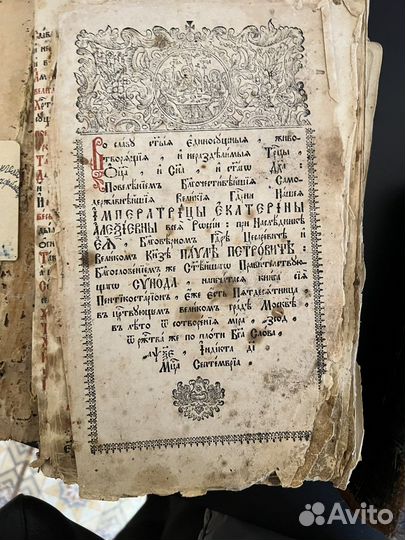 Во славу ст҃ыѧ единосущныѧ, живо-
творѧщїѧ, и нераздѣлимыѧ Трⷪ҇цы
Ѻ҆ц҃а, и Сн҃а, и ст҃агѡ Дх҃а:
Повелѣнїемъ Благочестивѣйшїѧ Само-
державнѣйшїѧ Великїѧ Гдⷭ҇рни Нашеѧ
ИМПЕРАТРИЦЫ ЕКАТЕРИНЫ
АЛЕѮІЕВНЫ всеѧ Россїи: при Наслѣдникѣ
ЕѦ, Благовѣрномъ Гдⷭ҇рѣ Цесаревичѣ и
Великомъ Кнѧзѣ ПАѴЛѢ ПЕТРОВИЧѢ:
Благословенїемъ же Ст҃ѣйшагѡ Правителствꙋю-
щагѡ СѴНОДА, напечатасѧ книга сїѧ
Пентикостарїонъ, еже есть Пѧтдесѧтница
въ царствꙋющемъ великомъ градѣ Москвѣ,
въ лѣто ѿ сотворенїѧ мїра,
ѿ рⷤ҇ства же по плоти Бг҃а Слова
індикта
Мцⷭ҇а Септемврїа
Avito